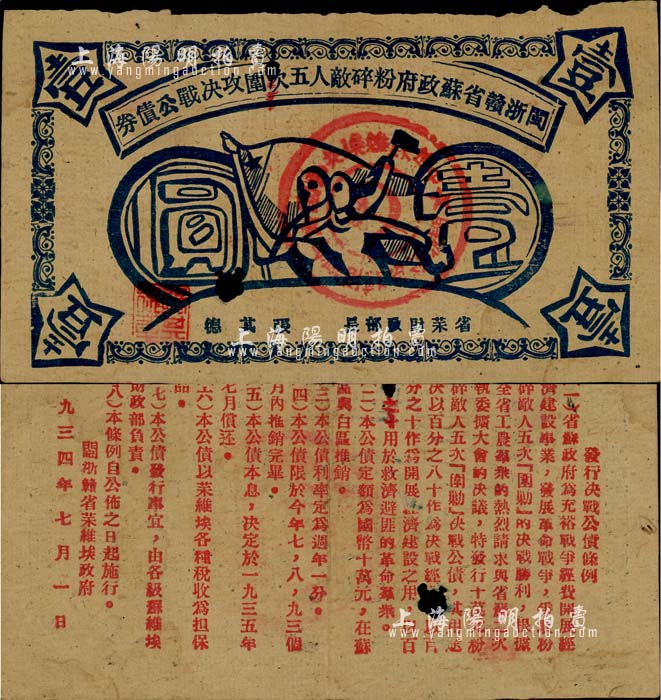 上海陽明拍賣
www.yangmingauction.com
壹
壹
閩浙贛省蘇政府粉碎敵人五次圍攻决戰公債券
壹
圓
壹
壹
省菜財政部長
德
上海陽明拍賣
www.yangmingauction.com
發行决戰公債條例
一)省蘇政府為充裕戰爭經費開展經
濟建設事業,發展革命戰爭,
粉
碎敵人五次『圍勦』的决戰勝利,根據
全省工農羣衆的熱烈請求與省
次
執委擴大會的决議,特發行十
粉
碎敵人五次『圍勦』决戰公債,此用途
决以百分之八十作為决戰經
百
分之十作為開展
濟建設之用
百
分之十用於救濟避匪的革命羣衆。
二)本公債定額為國幣十萬元,在蘇
區與白區推銷。
三)本公債利率定為週年一分。
四)本公債限於今年七,八,九三個
月內推銷完畢。
五)本公債本息,决定於一九三五年
七月償還。
六)本公債以菜維埃各種税收為担保
品。
七)本公債發行事宜,由各級蘇維埃
財政部負責。
八)本條例自公佈之日起施行。
閩浙贛省菜維埃政府
九三四年七月一日
上海陽明拍賣
www.yangmingauction.com